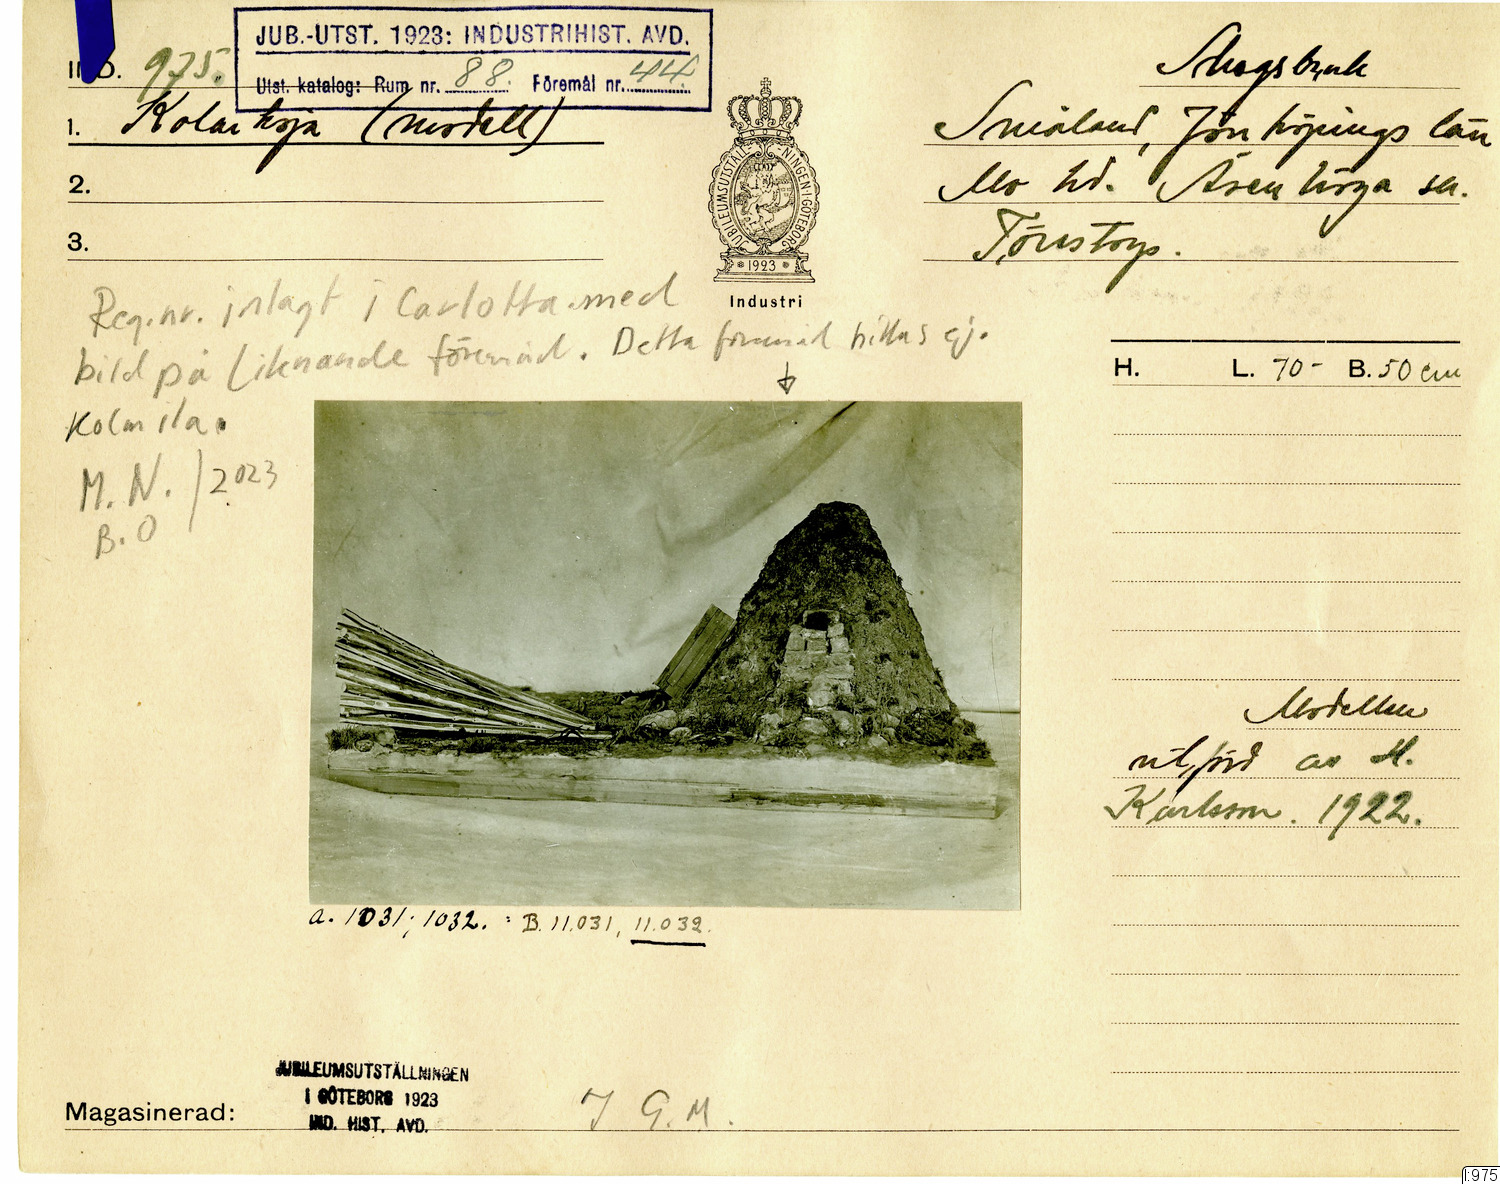 JUB.-UTST. 1923: INDUSTRIHIST. AVD.
Utst. katalog: Rum nr. 88. Föremål nr. 44
IND. 975.
1. Kolarkoja (modell)
2.
3.
JUBILEUMSUTSTÄLLNINGEN I GÖTEBORG
1923
Industri
Skogsbruk
Småland, Jönköpings län
Mo hd. Åsenhöga sn.
Reg.nr. inlagt i Carlotta med
bild på liknande föremål. Detta föremål hittas ej.
Kolmila.
M. N. / 2023
B. O
H. L. 70- B. 50 cm
Modellen
utförd av
Karlsson. 1922.
a. 1031; 1032. : B. 11.031, 11.032.
JUBILEUMSUTSTÄLLNINGEN
I GÖTEBORG 1923
IND. HIST. AVD.
Magasinerad: G. M.
I:975